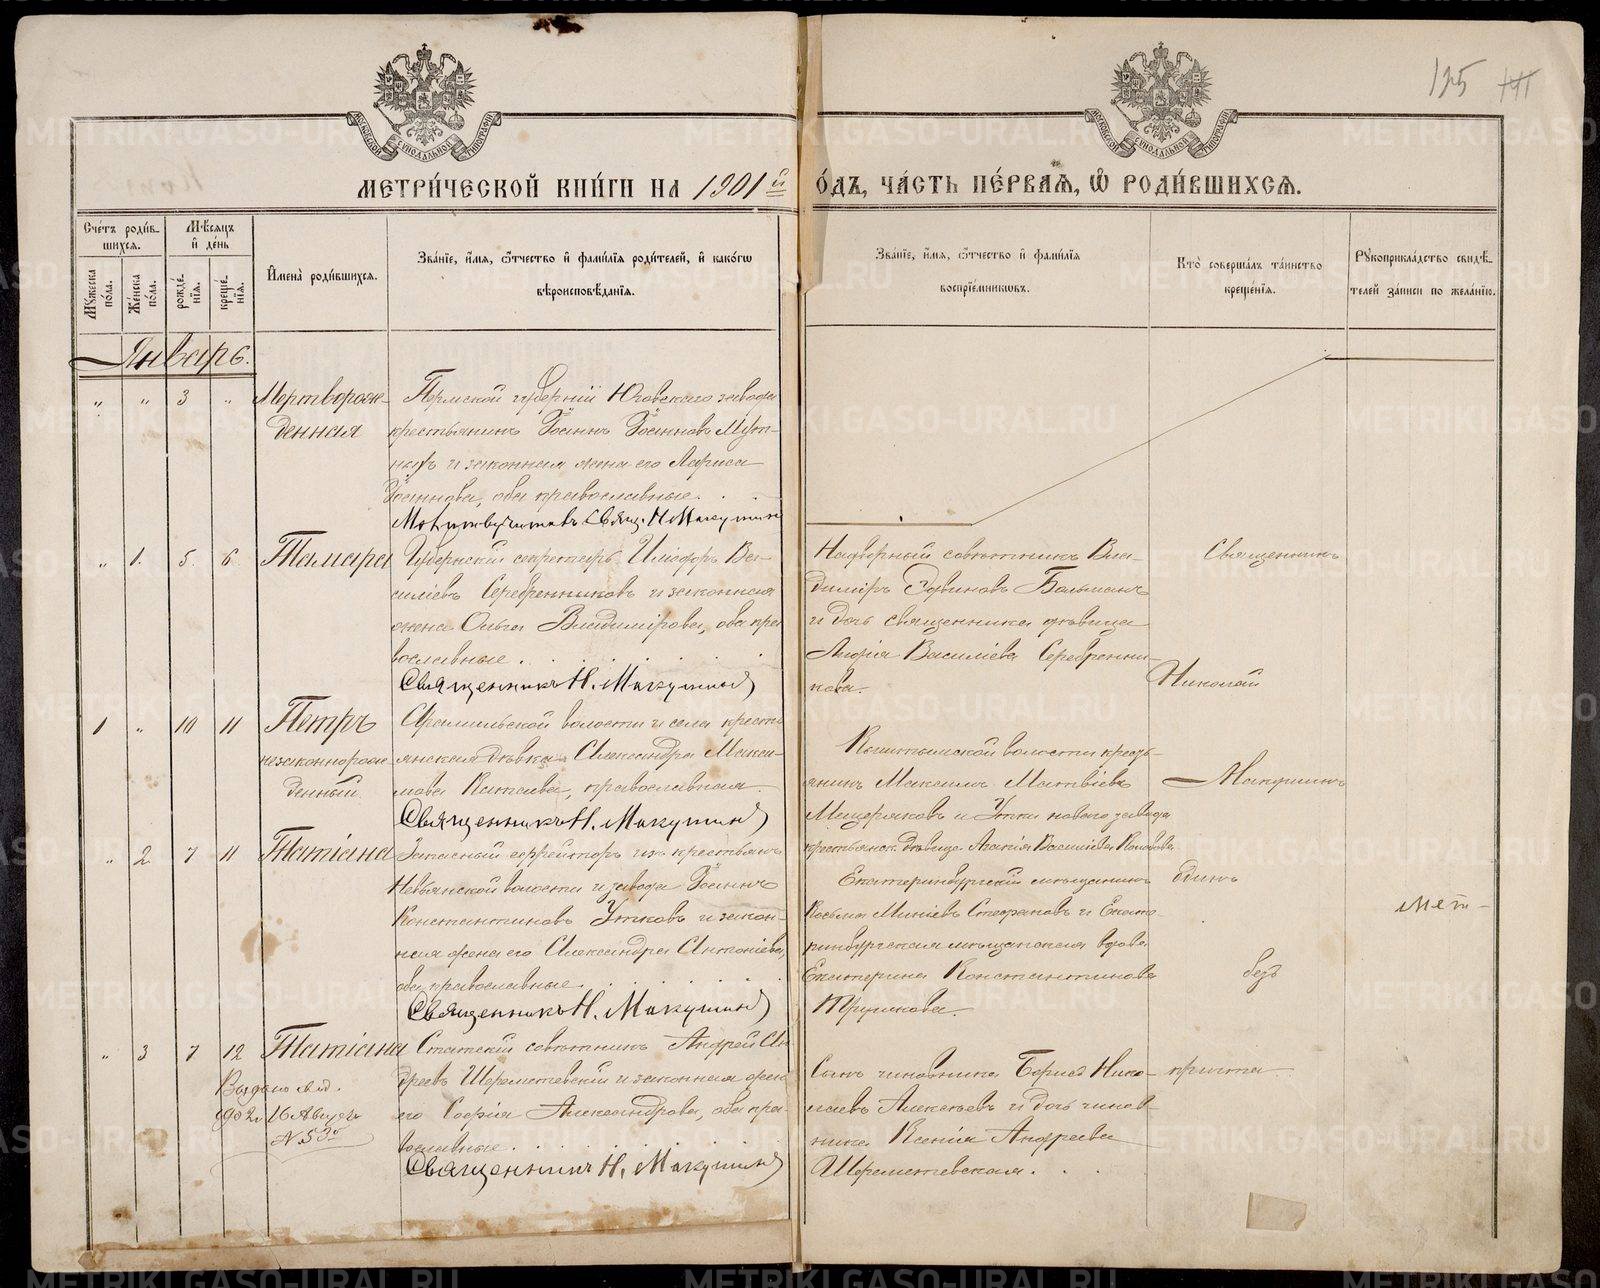 125
МЕТРИ́ЧЕСКОЙ КНИ́ГИ НА 1901 й
О́ДЪ, ЧА́СТЬ ПЕ́РВАѦ, Ѿ РОДИ́ВШИХСѦ.
МОСКОВСКОЙ СѴНОДАЛЬНОЙ ТИПОГРАФІИ
МОСКОВСКОЙ СѴНОДАЛЬНОЙ ТИПОГРАФІИ
Сче́тъ роди́в-
шихся.
Мѣ́сяцъ
и́ де́нь
Мꙋ́жеска по́ла.
Же́нска по́ла.
рожде́-
нїѧ.
креще́-
нїѧ.
И҆мена̀ роди́вшихсѧ.
Зва́нїе, и҆́мѧ, ѻ҆́тчество и҆ фами́лїѧ роди́телей, и҆ како́гѡ
вѣроисповѣ́данїѧ.
Зва́нїе, и҆́мѧ, ѻ҆́тчество и҆ фами́лїѧ
воспрїе́мникѡвъ.
Кто̀ соверша́лъ та́инство
креще́нїѧ.
Рꙋкоприкла́дство свидѣ́-
телей за́писи по жела́нїю.
Январь.
" " 3 " Мертворож-
денная
Пермской губерніи Юговскаго завода
крестьянинъ Іоаннъ Іоанновъ
и законная жена его Лариса
Іоаннова, оба православные.
Свящ. Н. Макушинъ
" 1. 5. 6. Тамара
Губернскій секретарь Иліодоръ Ва-
силіевъ Серебренниковъ и законная
жена Ольга Владимірова, оба пра
вославные.
Священникъ Н. Макушинъ
Надворный совѣтникъ Вла-
диміръ Эдвиновъ Больманъ
и дочь священника дѣвица
Лидія Василіева Серебренни-
кова.
Священникъ
Николай
1 " 10 11 Петръ
незаконнорож-
денный
Арамильской волости и села кресть
янская дѣвка Александра Макси-
мова Катаева, православная.
Священникъ Н. Макушинъ
Кыштымской волости кресть-
янинъ Максимъ Матвіевъ
Мещеряковъ и Утки новаго завода
крестьянск. дѣвица Агапія Василіева
Макушинъ
" 2 7 11 Татіана
Запасный ефрейторъ изъ крестьянъ
Невьянской волости и завода Іоаннъ
Константиновъ Утковъ и закон-
ная жена его Александра Антоніева,
оба православные.
Священникъ Н. Макушинъ
Екатеринбургскій мѣщанинъ
Косьма Миніевъ Стефановъ и Екате-
ринбургская мѣщанская вдова
Екатерина Константинова
одинъ
без
Мѣт-
" 3 7 12 Татіана
Выдано м.д.
1902 г. 16 Августа
№ 53
Статскій совѣтникъ Андрей Ан
дреевъ Шереметевскій и законная жена
его Софія Александрова, оба пра-
вославные.
Священникъ Н. Макушинъ
Сынъ чиновника Борисъ Нико-
лаевъ Алексѣевъ и дочь чинов-
ника Ксенія Андреева
Шереметевская.
причта.